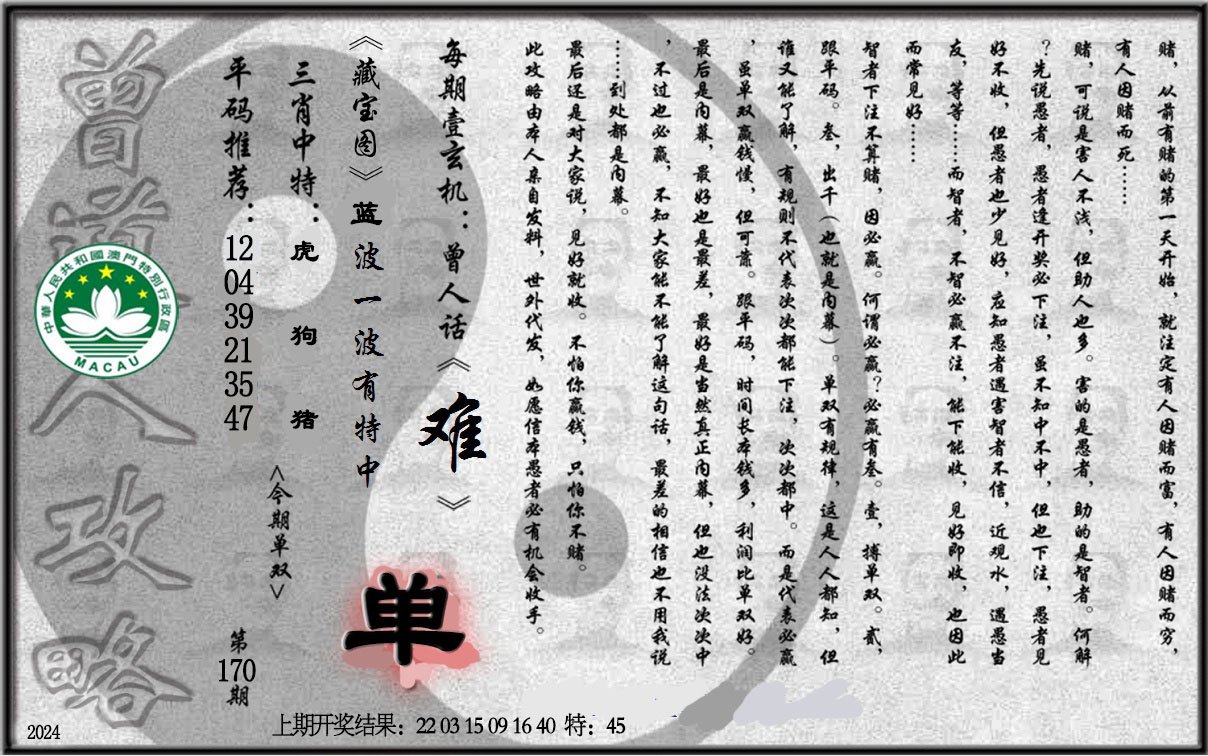 赌，从前有赌的第一天开始，就注定有人因赌而富，有人因赌而穷，
有人因赌而死……
赌，可说是害人不浅，但助人也多。害的是愚者，助的是智者。何解
？先说愚者，愚者逢开奖必下注，虽不知中不中，但也下注，愚者见
好不收，但愚者也少见好，应知愚者遇害智者不信，近观水，遇愚当
友，等等……而智者，不智必赢不注，能下能收，见好即收，也因此
而常见好……
智者下注不算赌，因必赢。何谓必赢？必赢有叁。壹，搏单双。贰，
跟平码。叁，出千（也就是内幕）。单双有规律，这是人人都知，但
谁又能了解，有规则不代表次次都能下注，次次都中。而是代表必赢
，虽单双赢钱慢，但可靠。跟平码，时间长本钱多，利润比单双好。
最后是内幕，最好也是最差，最好是当然真正内幕，但也没法次次中
，不过也必赢，不知大家能不能了解这句话，最差的相信也不用我说
……到处都是内幕。
最后还是对大家说，见好就收。不怕你赢钱，只怕你不赌。
此攻略由本人亲自发料，世外代发，如愿信本愚者必有机会收手。
每期壹玄机：曾人话《难》
《藏宝图》蓝波一波有特中
三肖中特：虎 狗 猪
<今期单双>
单
平码推荐：12 04 39 21 35 47
第170期
曾道人攻略
中華人民共和國澳門特別行政區
MACAU
上期开奖结果：22 03 15 09 16 40 特：45
2024